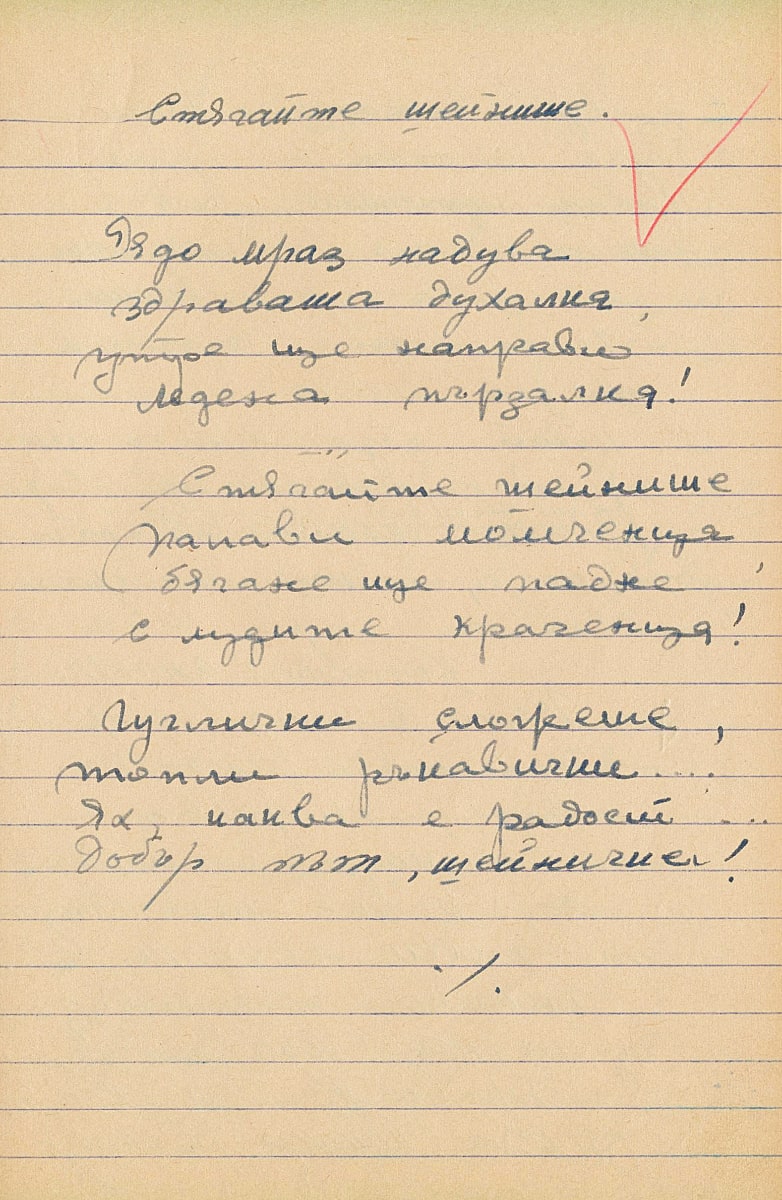 Стягайте шейните.
Дядо мраз надува
здравата духалка,
утре ще направи
ледена пързалка!
Стягайте шейните
палави момченца,
бягане ще падне
с лудите краченца!
Гуглички сложете,
топли ръкавички....
Ях, каква е радост ...
Добър път, шейнички!
./.